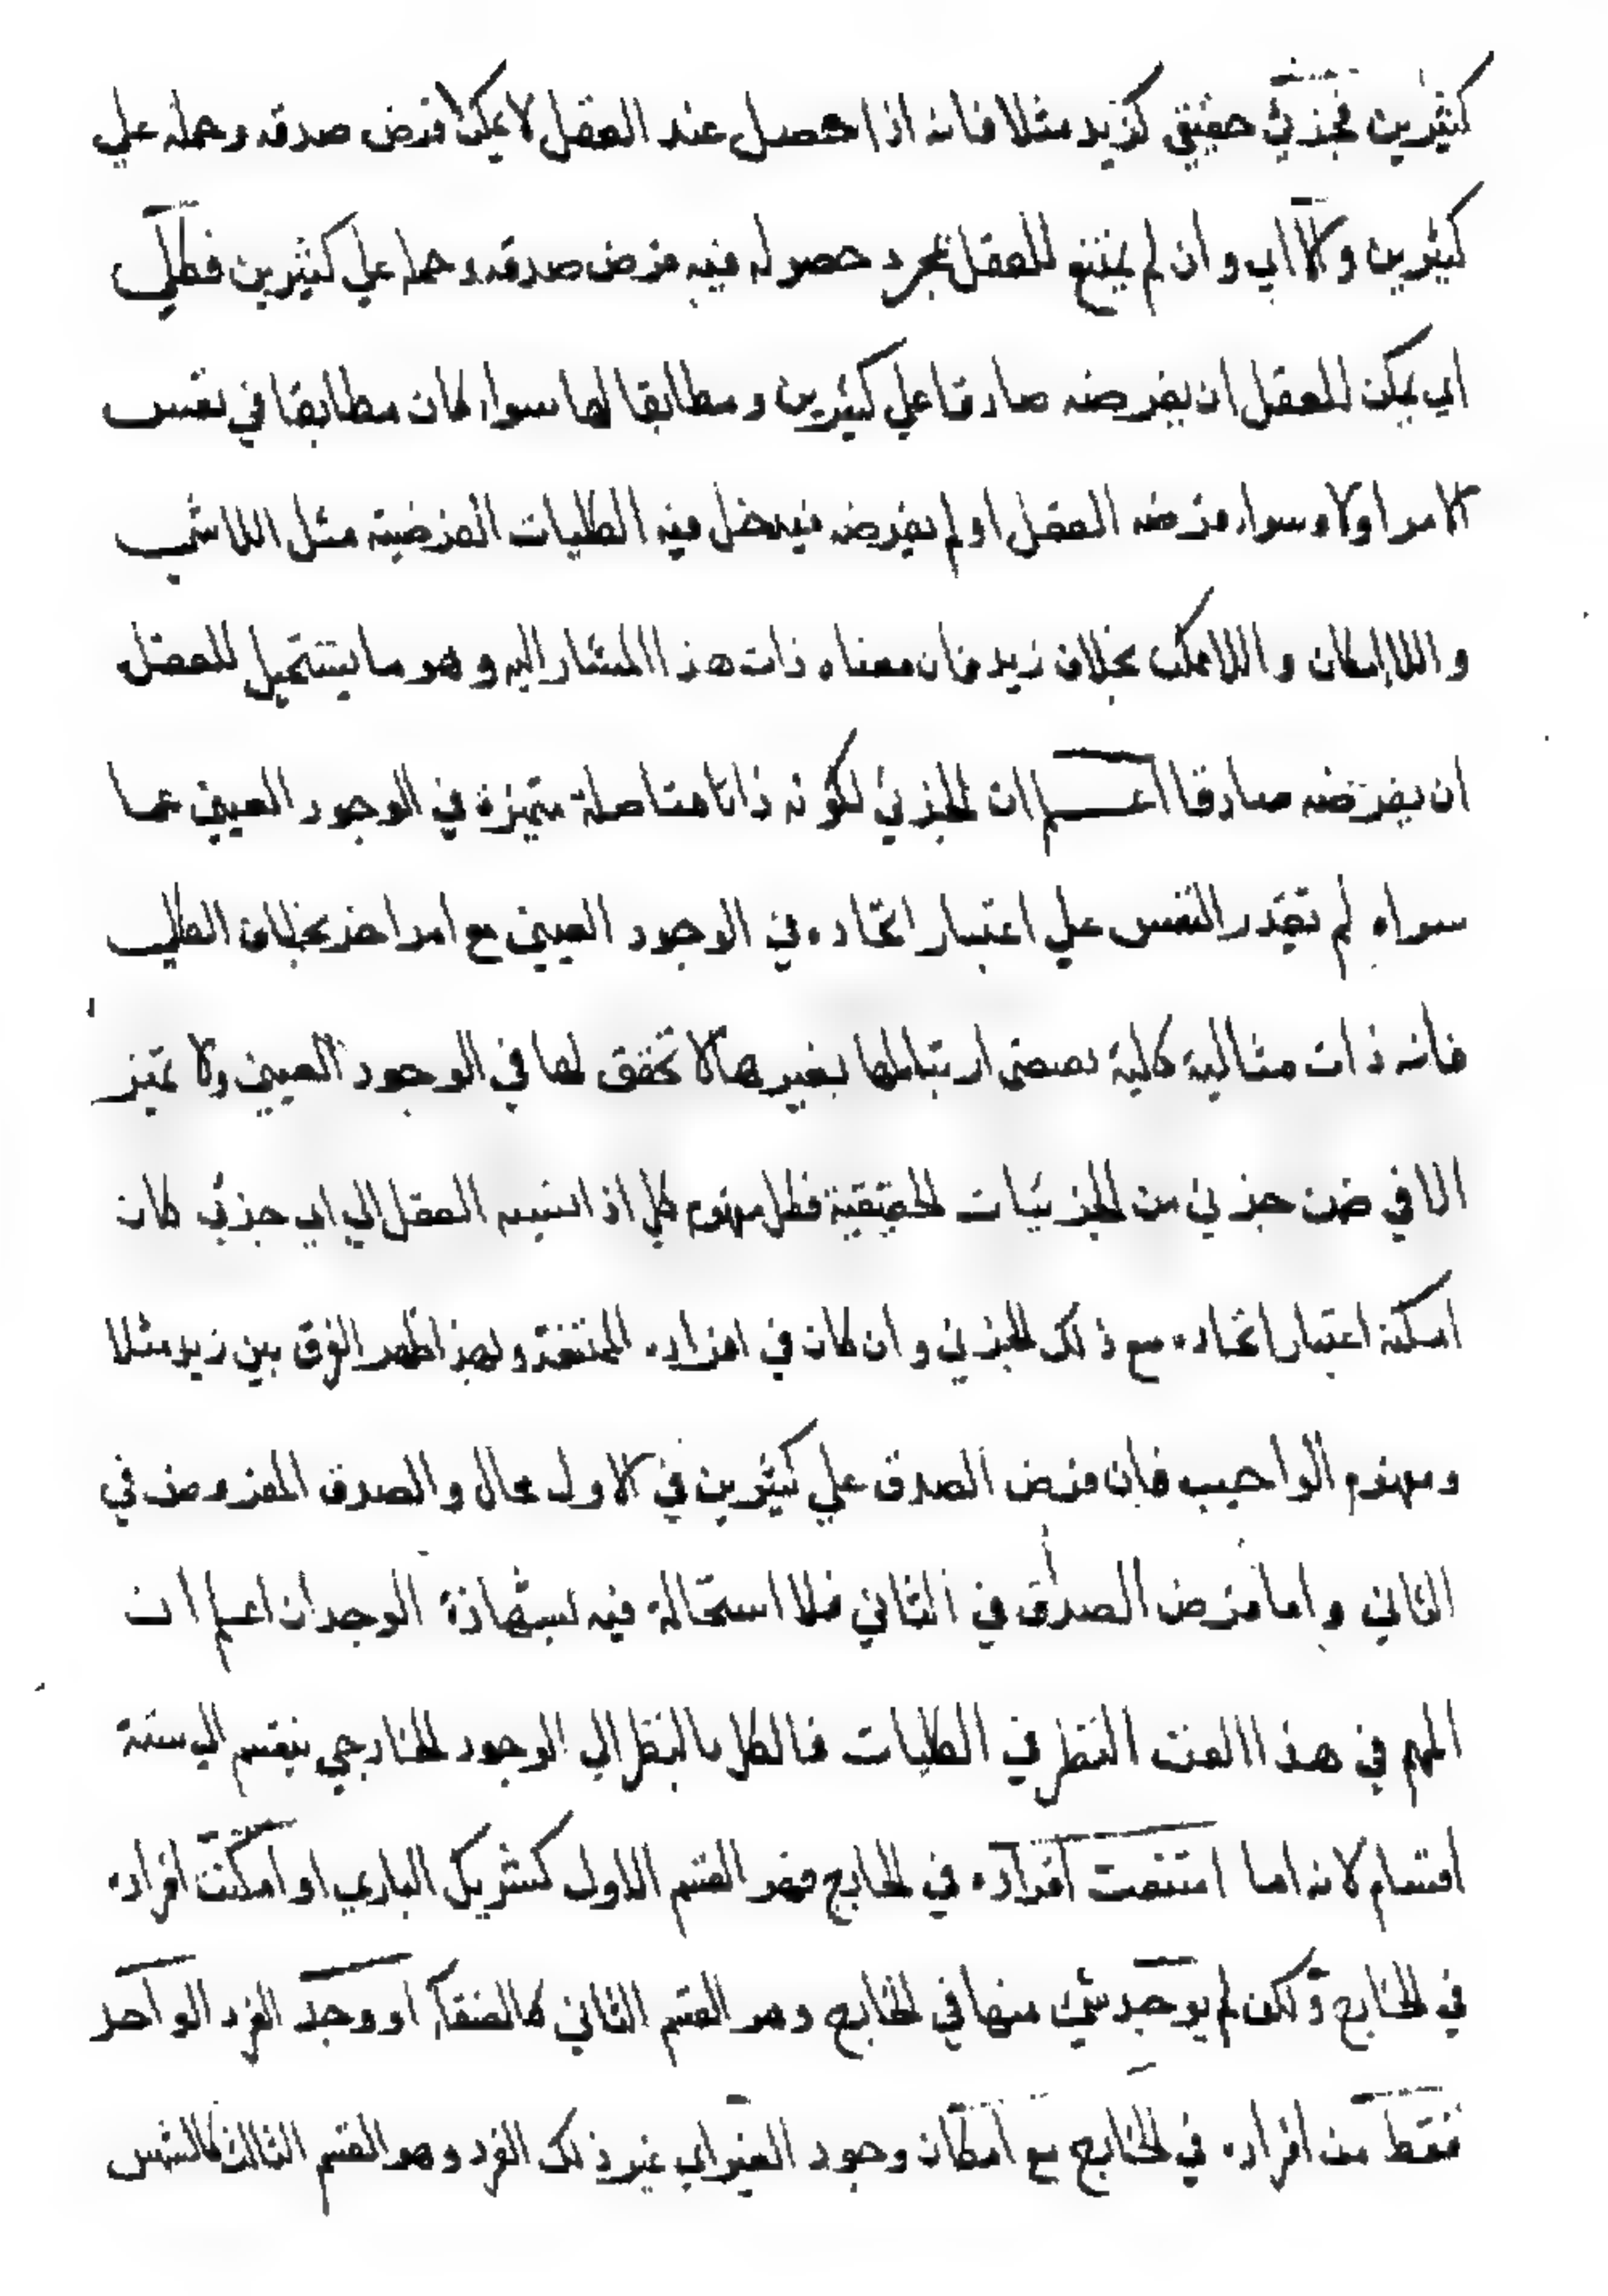 كثيرين فجزئي حقيقي كزيد مثلا فانه اذا حصل عند العقل لا يمكن فرض صدقه وحمله علي
كثيرين والا اي وان لم يمتنع للعقل بمجرد حصوله فيه فرض صدقه وحمله علي كثيرين فكلي
اي يمكن للعقل ان يفرضه صادقا علي كثيرين ومطابقا لها سواء كان مطابقا في نفس
الامر اولا وسواء فرضه العقل اولم يفرضه فيدخل فيه الكليات الفرضية مثل اللاشي
واللاامكان واللاممكن بخلاف زيد فان معناه ذات هذا المشار اليه وهو ما يستحيل للعقل
ان يفرضه صادقا اعلم ان الجزئي لكونه ذاتا متاصلة متميزة في الوجود العيني عما
سواه لم تقدر النفس علي اعتبار اتحاده في الوجود العيني مع امر اخر بخلاف الكلي
فانه ذات مثالية كلية ارتباطها بغيرها لا تحقق لها في الوجود العيني ولا تميز
الا في ضمن جزئي من الجزئيات الحقيقية فكل مفهوم كلي اذا نسبه العقل الي اي جزئي كان
امكنه اعتبار اتحاده مع ذلك الجزئي وان كان في افراده الممتنعة وبهذا ظهر الفرق بين زيد مثلا
ومفهوم الواجب فان فرض الصدق علي كثيرين في الاول محال والصدق المفروض في
الثاني واما فرض الصدق في الثاني فلا استحالة فيه بشهادة الوجدان اعلم ان
المهم في هذا الفن النظر في الكليات فالكلي بالنظر الي الوجود الخارجي ينقسم الي ستة
اقسام لانه اما امتنعت افراده في الخارج فهو القسم الاول كشريك الباري او امكنت افراده
في الخارج ولكن لم يوجد شي منها في الخارج وهو القسم الثاني كالعنقاء او وجد الفرد الواحد
فقط من افراده في الخارج مع امكان وجود الغير اي غير ذلك الفرد وهو القسم الثالث كالشمس